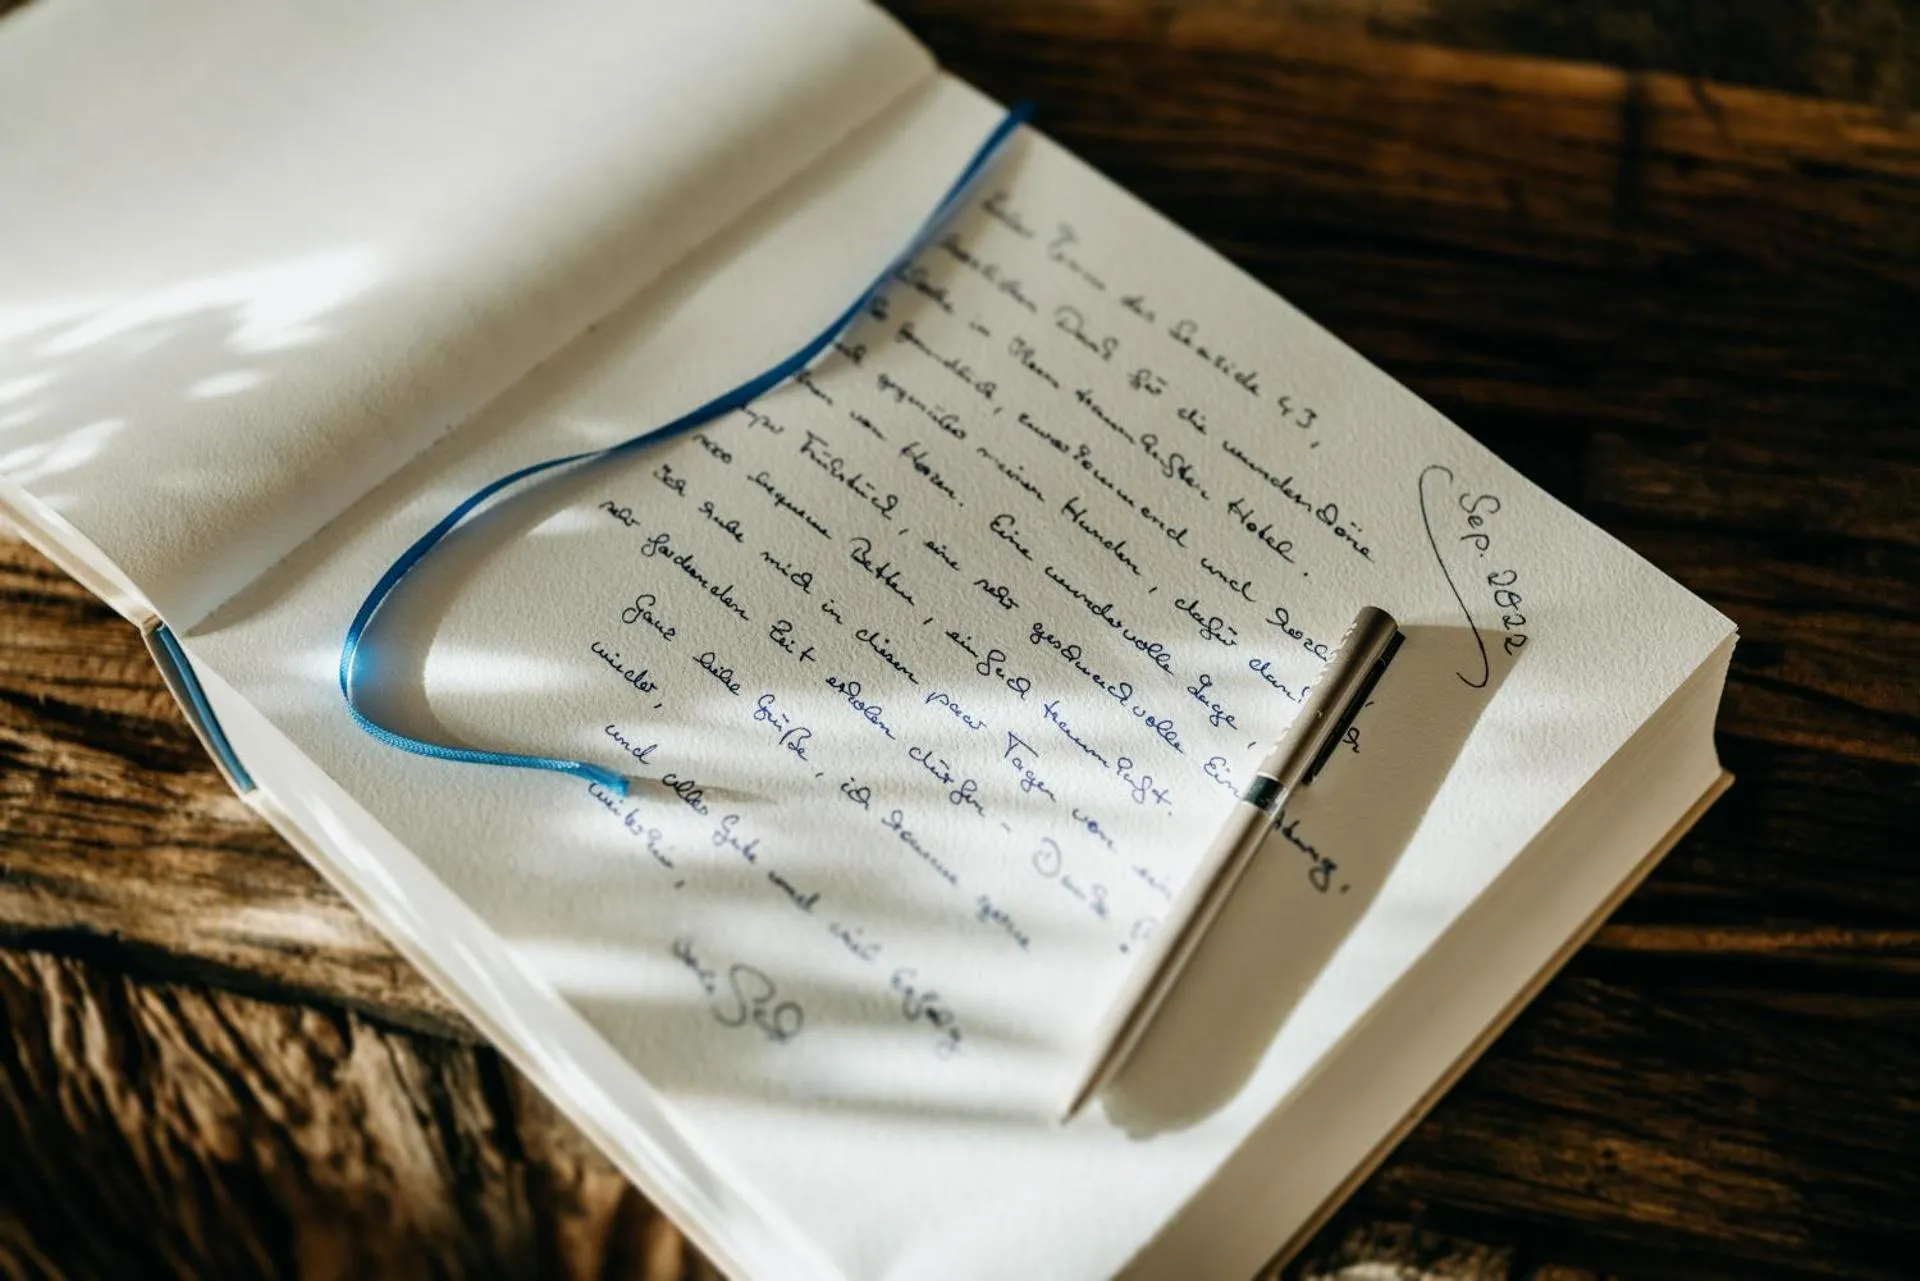 Liebes Team der Seaside 43,
herzlichen Dank für die wunderschöne
Woche in Ihrem traumhaften Hotel.
So freundlich, zuvorkommend und herzlich,
auch gegenüber meinen Hunden, dafür danke ich
Ihnen von Herzen. Eine wundervolle Lage,
super Frühstück, eine sehr geschmackvolle Einrichtung,
sooo bequeme Betten, einfach traumhaft.
Ich habe mich in diesen paar Tagen von einer
sehr fordernden Zeit erholen dürfen - Danke
Ganz liebe Grüße, ich komme gerne
wieder,
und alles Gute und viel Erfolg
weiterhin,
Sep. 2022